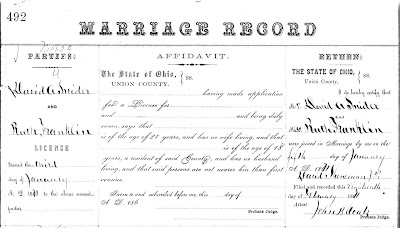 492
MARRIAGE RECORD
PARTIES:
David A Snider
AND
Ruth Franklin
LICENSE
Issued the third
day of January
A. D. 18 to the above named
parties
AFFIDAVIT.
The State of Ohio, } ss.
UNION COUNTY,
having made application
for a License for
and being duly
sworn, says that
is of the age of 21 years, and has no wife living, and that
is of the age of 18
years, a resident of said County, and has no husband
living, and that said parties are not nearer kin than first
cousins.
Sworn to and subscribed before me, this day of
A. D. 186
Probate Judge.
RETURN:
THE STATE OF OHIO, } ss.
UNION COUNTY,
I do hereby certify that
Mr. David A Snider
AND
Miss Ruth Franklin
were joined in Marriage by me on the
day of January
A. D. 18
David
Filed and recorded this
day of February
John B Coats
Probate Judge.